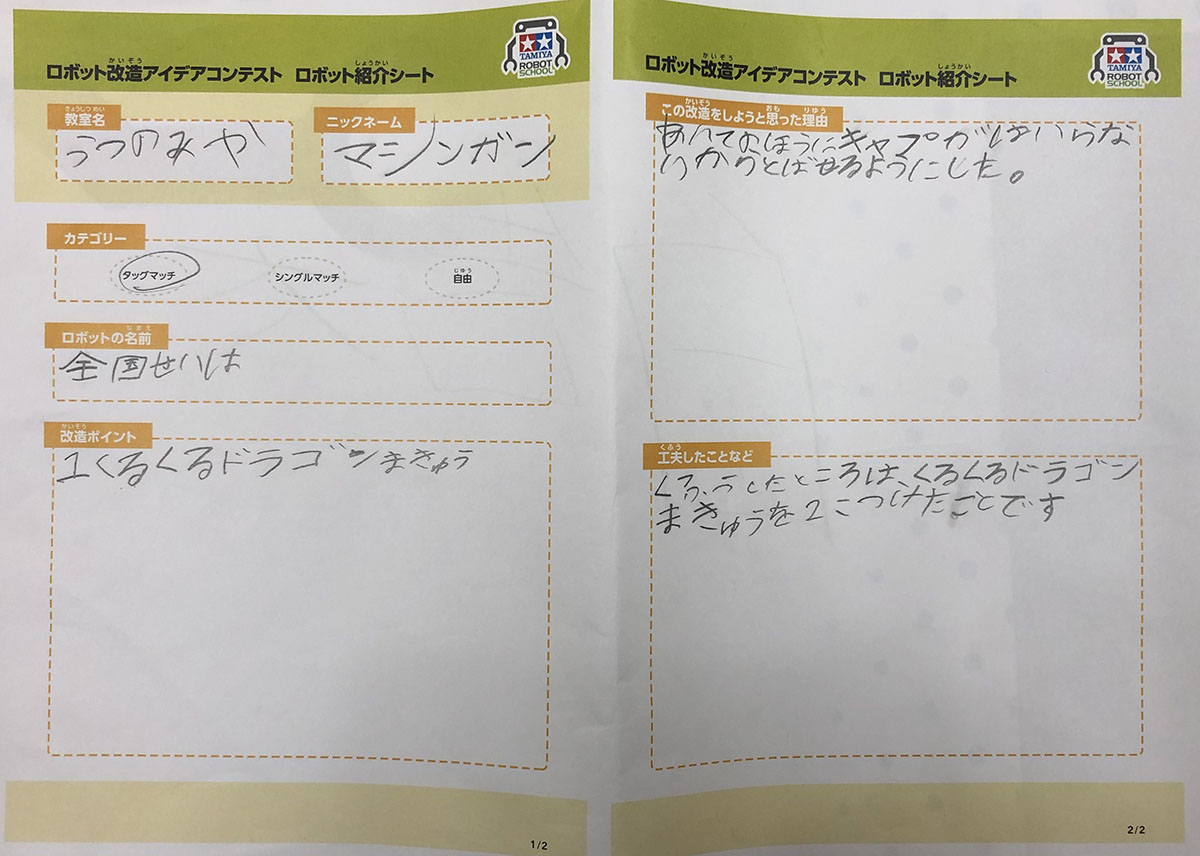 ロボット改造アイデアコンテスト ロボット紹介シート
かいぞう しょうかい
TAMIYA
ROBOT
SCHOOL
きょうしつ めい
教室名
うつのみや
ニックネーム
マシンガン
カテゴリー
タッグマッチ
シングルマッチ
じゆう
自由
なまえ
ロボットの名前
全国せいは
かいぞう
改造ポイント
1くるくるドラゴンまきゅう
1/2
かいぞう しょうかい
ロボット改造アイデアコンテスト ロボット紹介シート
TAMIYA
ROBOT
SCHOOL
かいぞう おも りゆう
この改造をしようと思った理由
あいてのほうにキャプがはいらな
いからとばせるようにした。
くふう
工夫したことなど
くふうしたところは、くるくるドラゴン
まきゅうを2こつけたことです
2/2